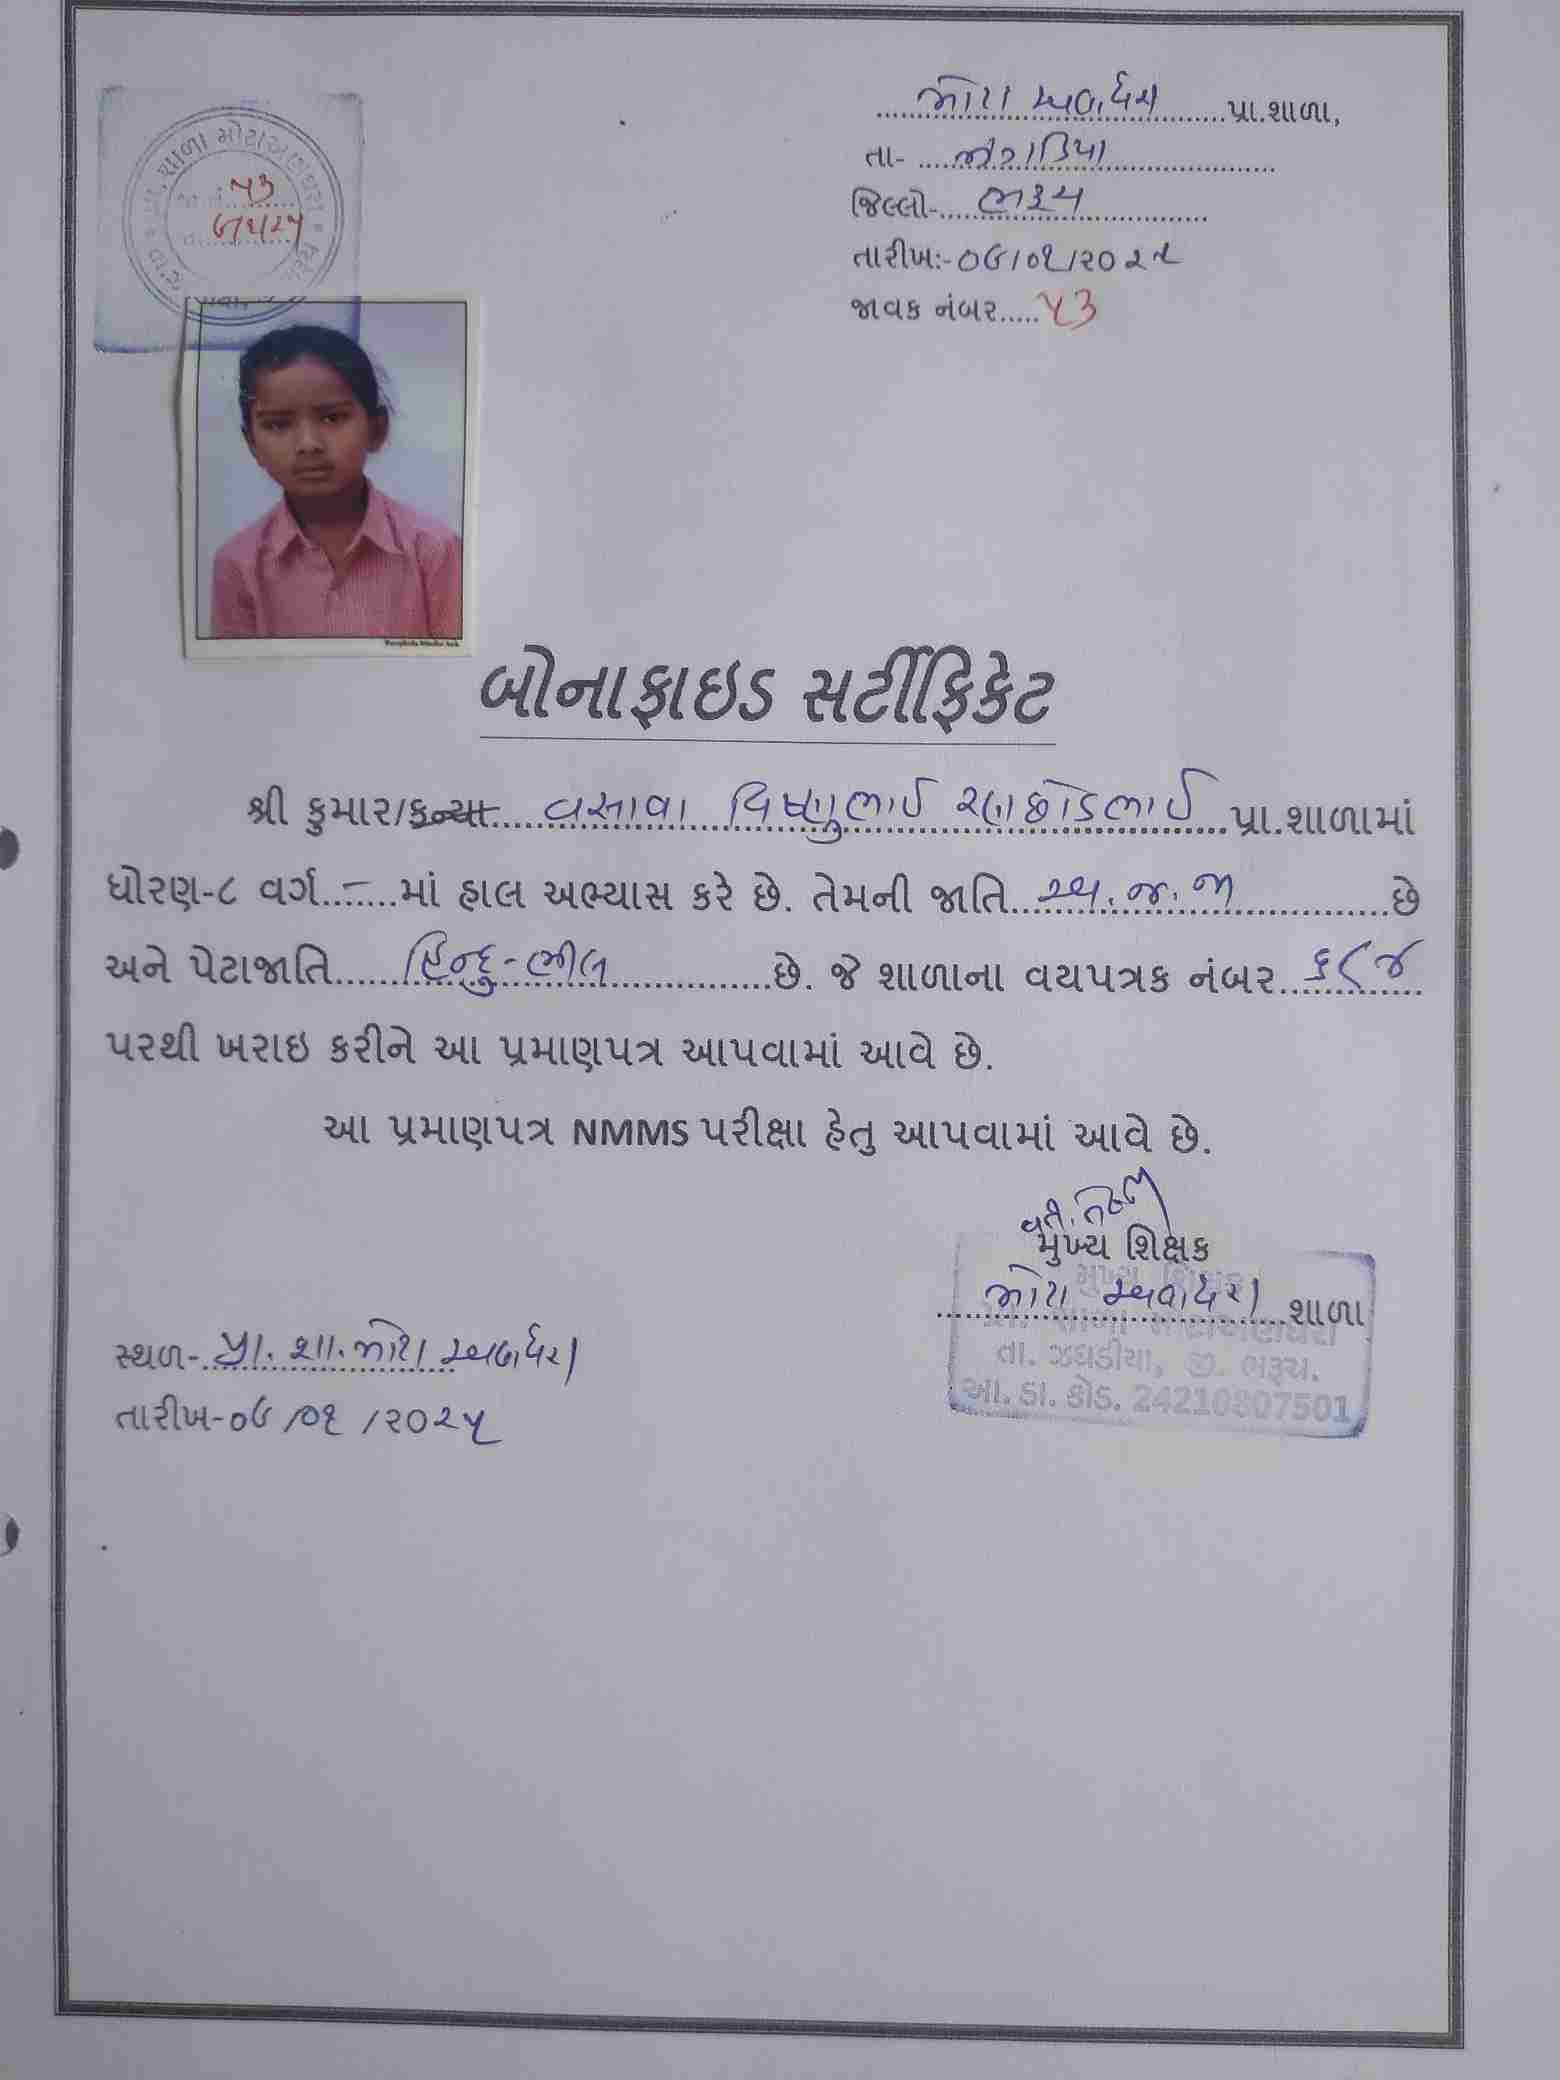 મોટા અણધરા પ્રા.શાળા,
તા- ઝગડિયા
જિલ્લો- ભરૂચ
તારીખ:- ૦૯/૦૧/૨૦૨૫
જાવક નંબર..... ૫૩
શાળા મોટાઅણધરા
૫૩
૯/૧/૨૫
બોનાફાઇડ સર્ટીફિકેટ
શ્રી કુમાર/કન્યા વસાવા વિષ્ણુભાઈ રણછોડભાઈ પ્રા.શાળામાં
ધોરણ-૮ વર્ગ.......માં હાલ અભ્યાસ કરે છે. તેમની જાતિ અ.જ.જા છે
અને પેટાજાતિ હિન્દુ-ભીલ છે. જે શાળાના વયપત્રક નંબર ૬૮૪
પરથી ખરાઇ કરીને આ પ્રમાણપત્ર આપવામાં આવે છે.
આ પ્રમાણપત્ર NMMS પરીક્ષા હેતુ આપવામાં આવે છે.
વતી.
મુખ્ય શિક્ષક
મોટા અણધરા શાળા
મુખ્ય શિક્ષક
પ્રા. શાળા મોટાઅણધરા
તા. ઝઘડીયા, જી. ભરૂચ.
આ. ડા. કોડ. 24210807501
સ્થળ- પ્રા. શા. મોટા અણધરા
તારીખ-૦૯/૦૧/૨૦૨૫